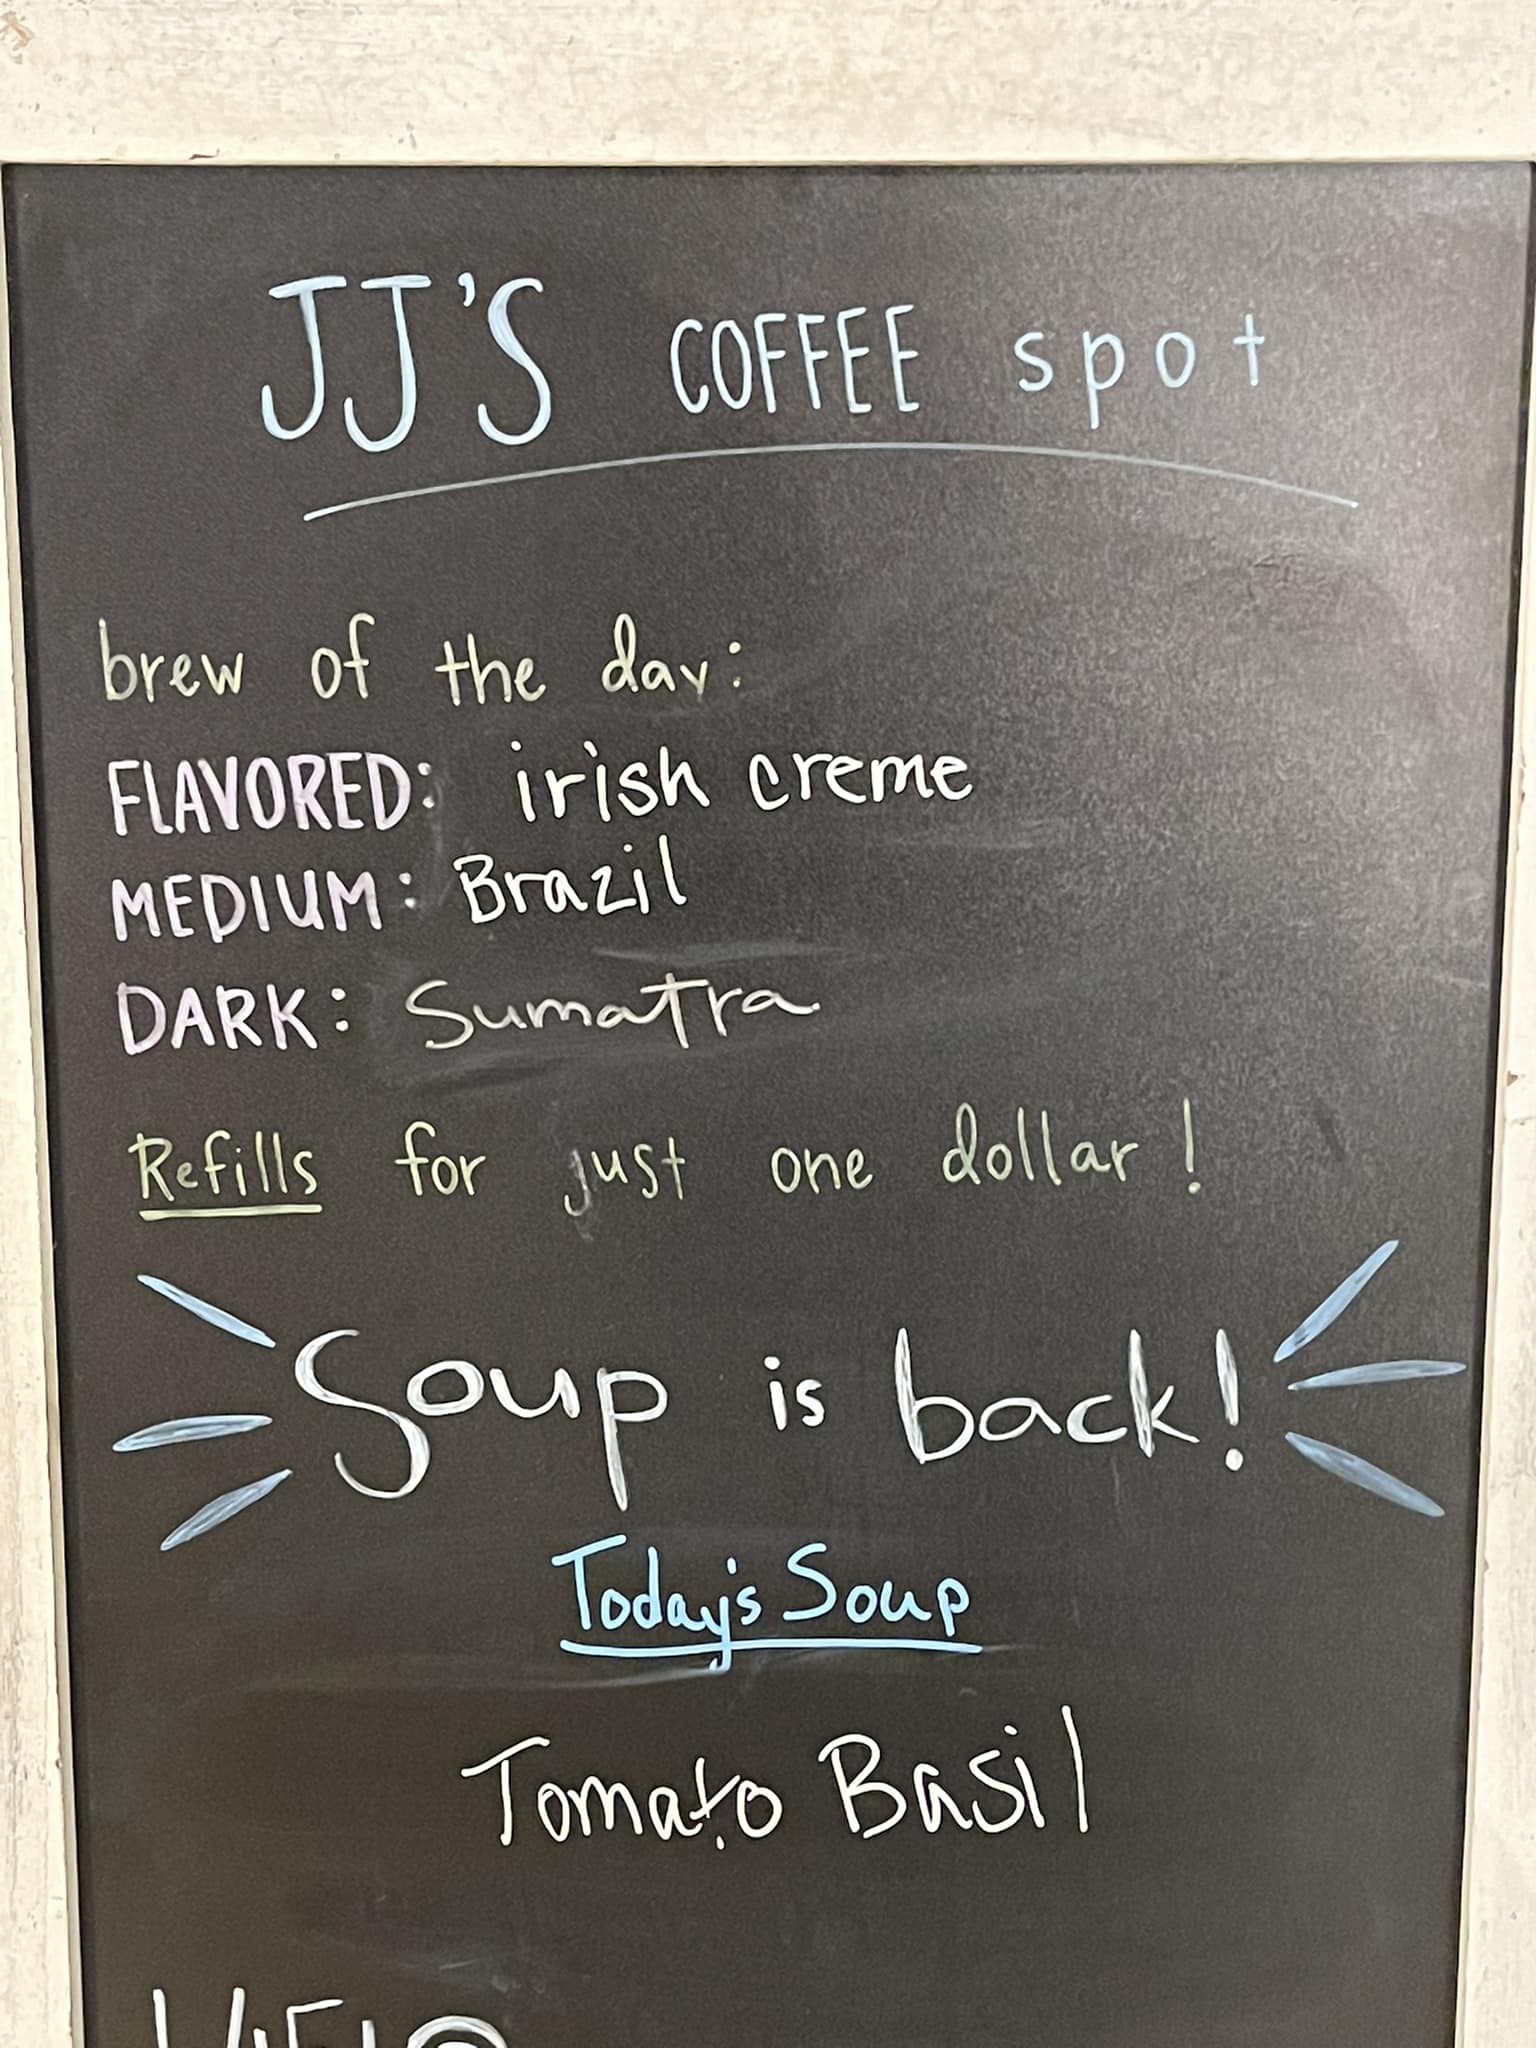 JJ'S COFFEE spot
brew of the day:
FLAVORED: irish creme
MEDIUM: Brazil
DARK: Sumatra
Refills for just one dollar!
Soup is back!
Today's Soup
Tomato Basil